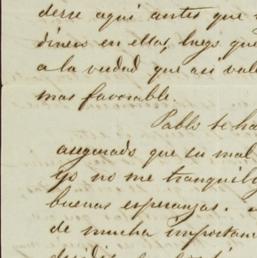 derse aquí antes que
dinero en ellas, luego que
a la verdad que asi vale
mas favorable.
Pablo se ha
asegurado que su mal
yo no me tranquili
buenas esperanzas.
de mucha importan